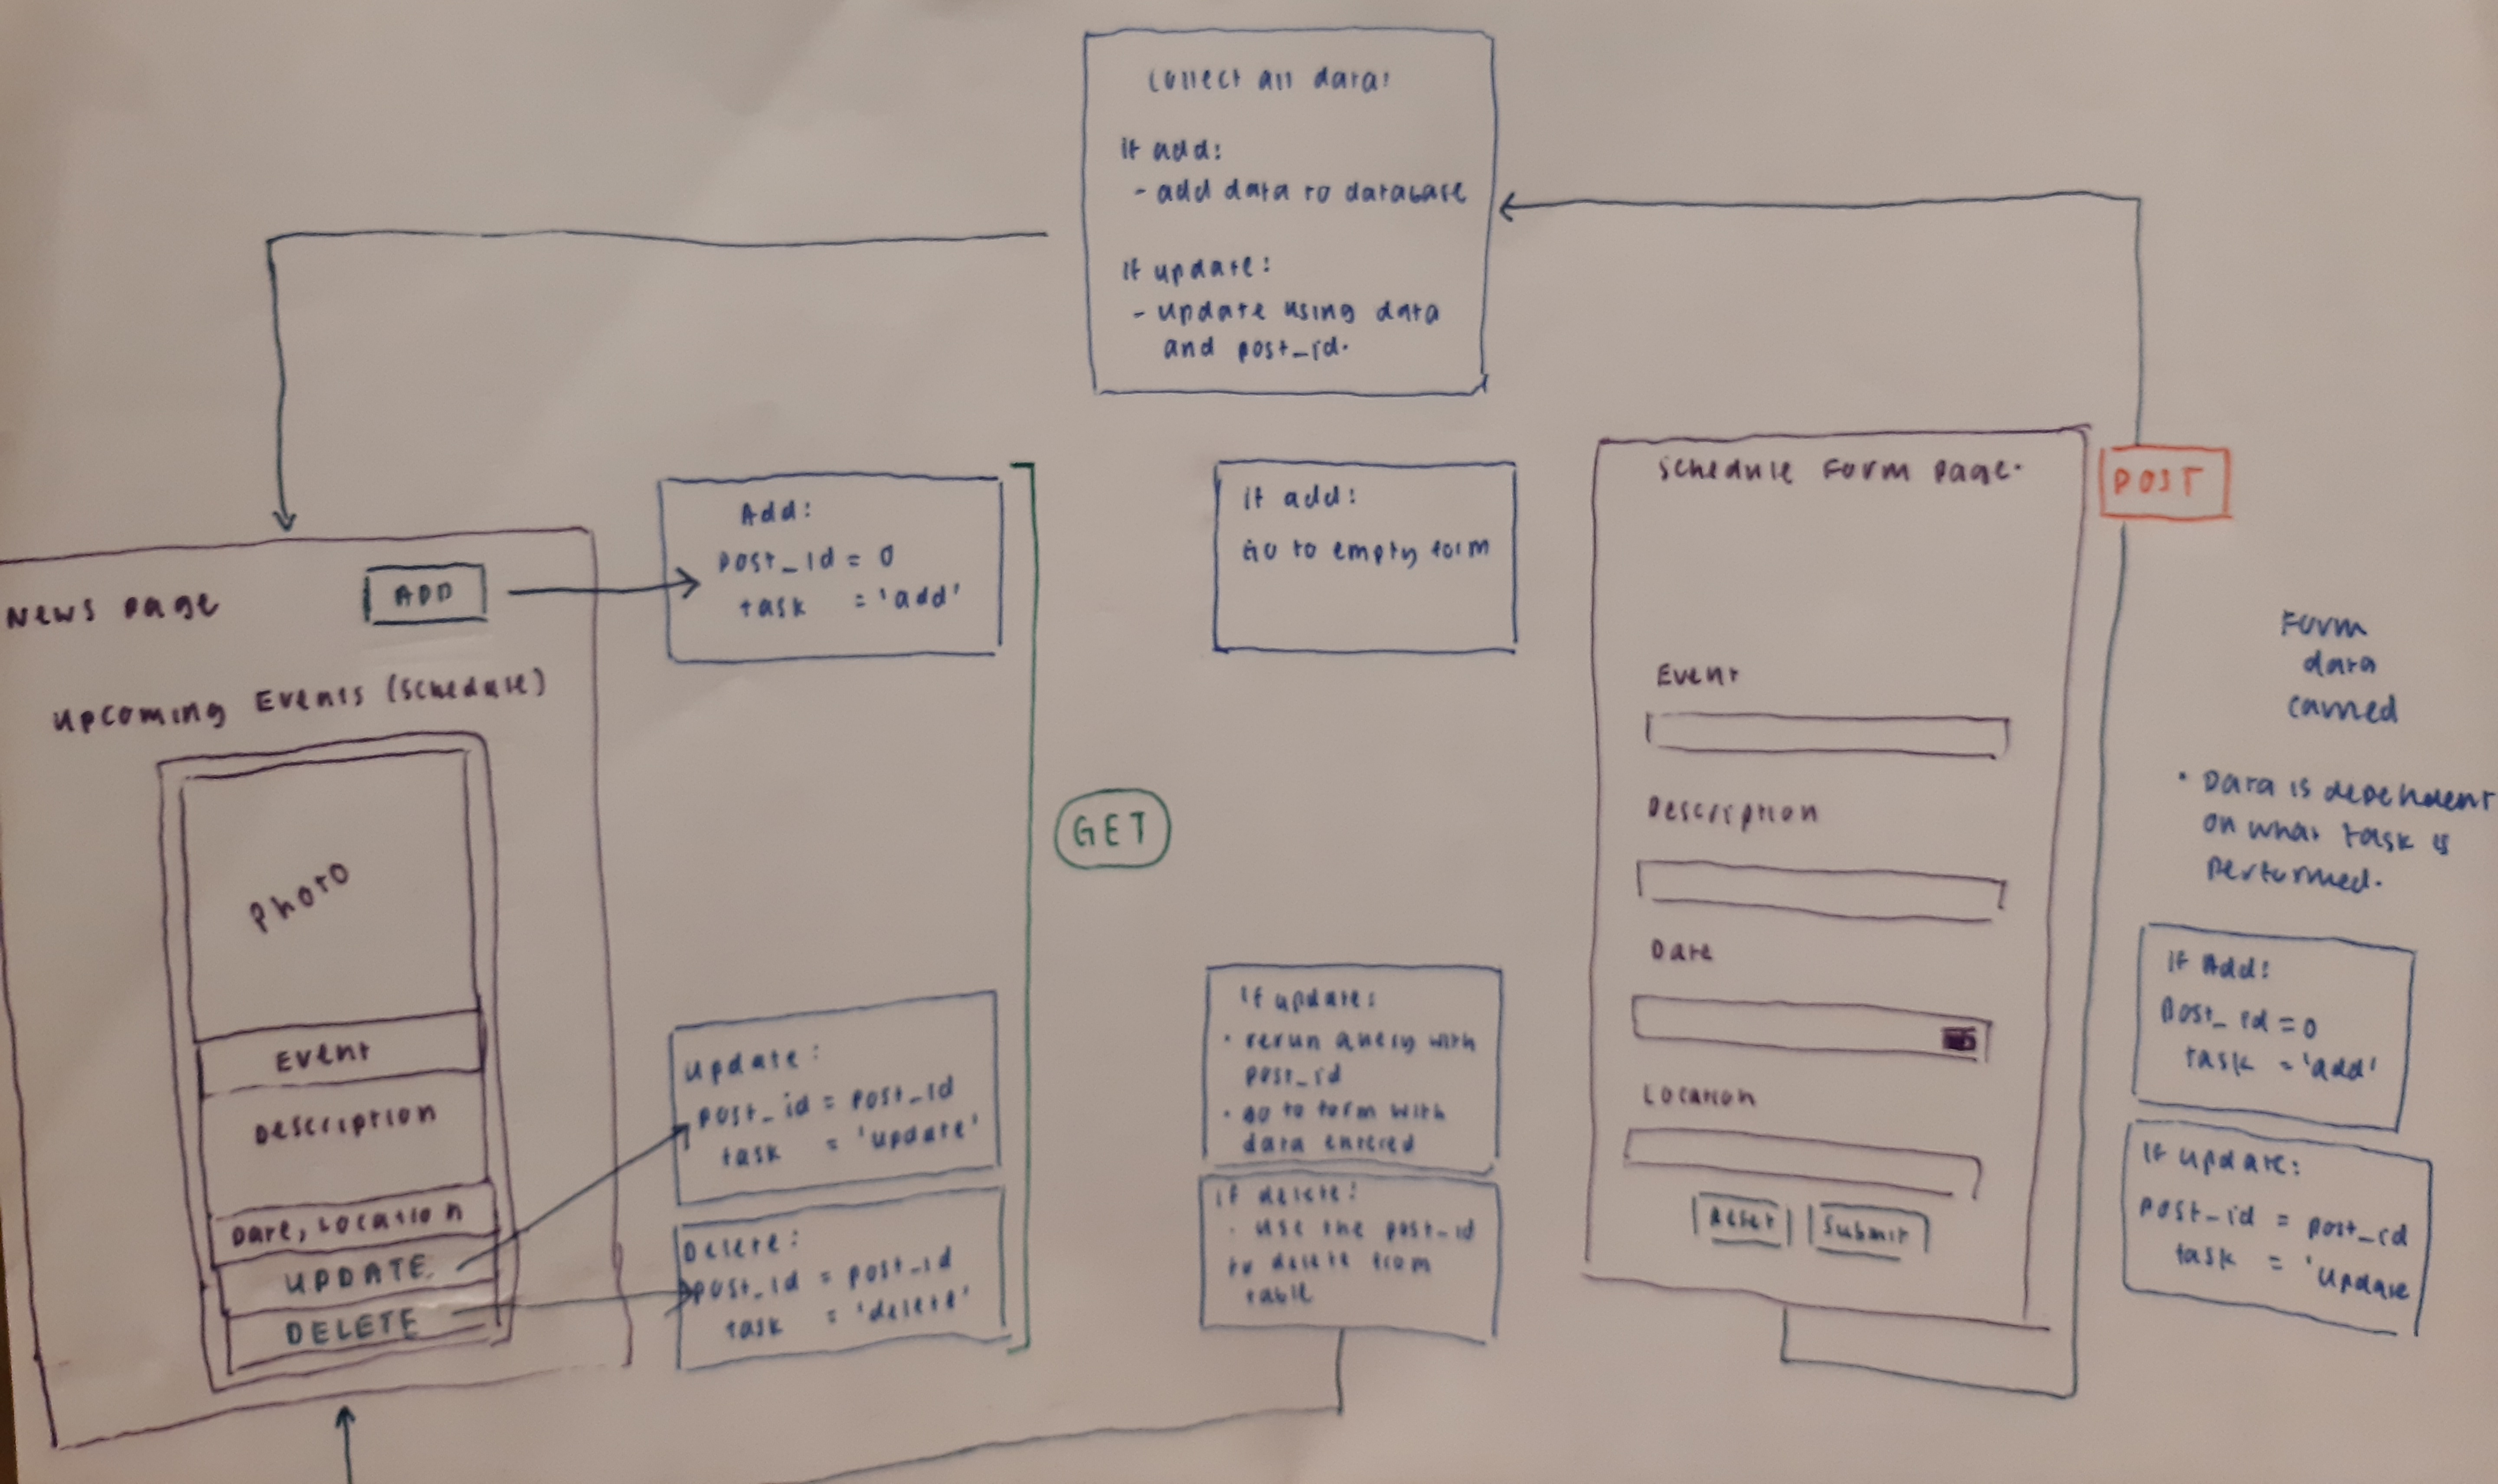 Collect all data:
if add:
- add data to database
If update:
- update using data
and post_id.
News page
ADD
Upcoming Events (Schedule)
Photo
Event
Description
Date, Location
UPDATE
DELETE
Add:
post_id = 0
task = 'add'
Update:
post_id = post_id
task = 'update'
Delete:
post_id = post_id
task = 'delete'
GET
if add:
Go to empty form
If update:
• rerun query with
post_id
• go to form with
data entered
if delete:
• use the post_id
to delete from
table
Schedule Form Page.
Event
Description
Date
Location
Reset
Submit
POST
Form
data
carried
• Data is dependent
on what task is
performed.
If Add:
Post_id = 0
task = 'add'
If update:
post_id = post_id
task = 'update